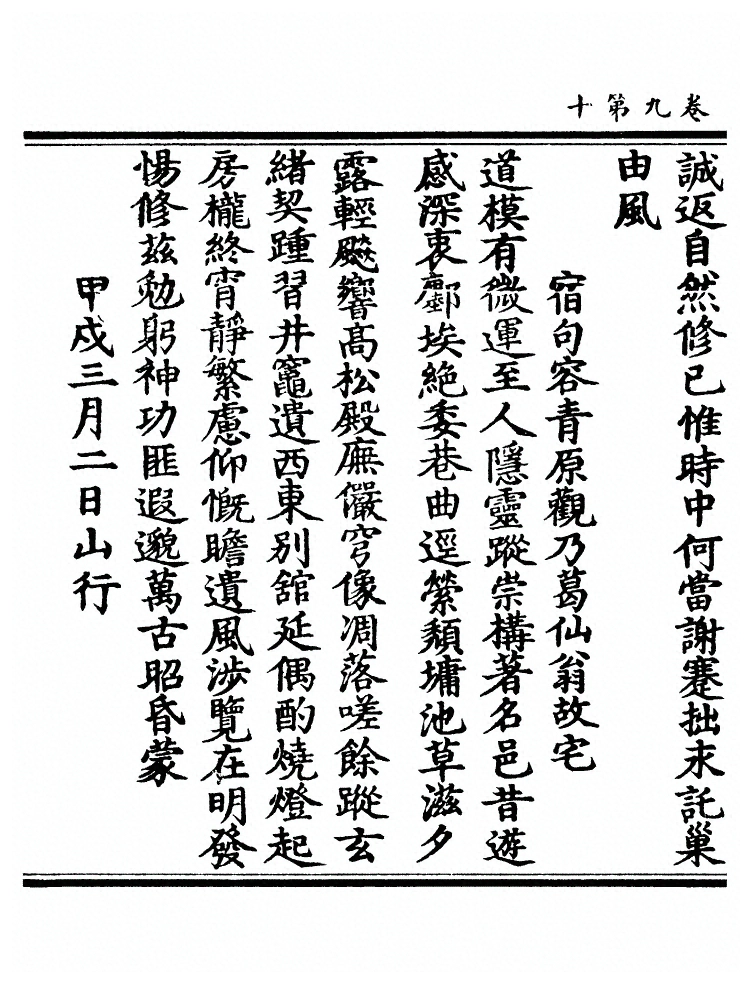 卷九第十
誠返自然修已惟時中何當謝蹇拙求託巢
由風
宿句容青原觀乃葛仙翁故宅
道模有微運至人隱靈蹤崇構著名邑昔遊
感深衷鄽埃絶委巷曲逕縈頽墉池草滋夕
露輕飈響高松殿廡儼穹像凋落嗟餘蹤玄
緖契踵習井竈遺西東别舘延偶酌燒燈起
房櫳終宵靜繁慮仰慨瞻遺風涉覽在明發
惕修茲勉躬神功匪遐邈萬古昭昏蒙
甲戍三月二日山行